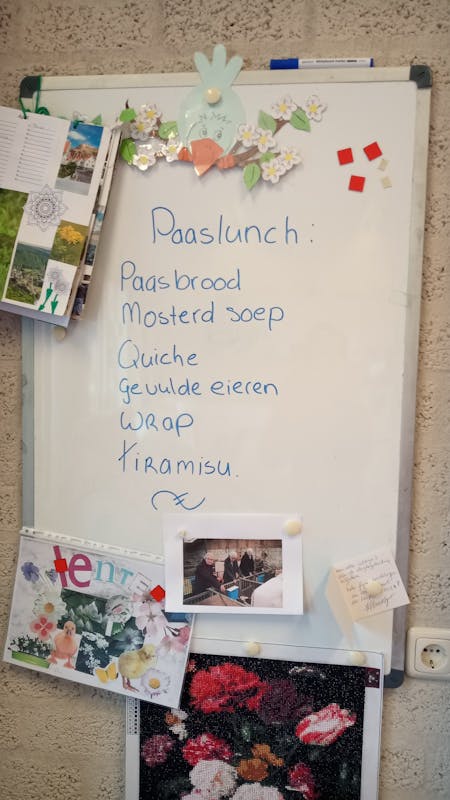 Paaslunch:
Paasbrood
Mosterd soep
Quiche
gevulde eieren
WRAP
tiramisu.
lente